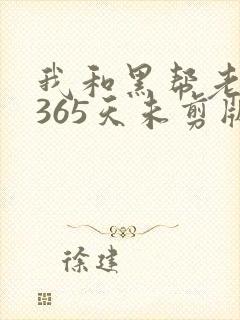 我和黑帮老
365天未剪版
徐建